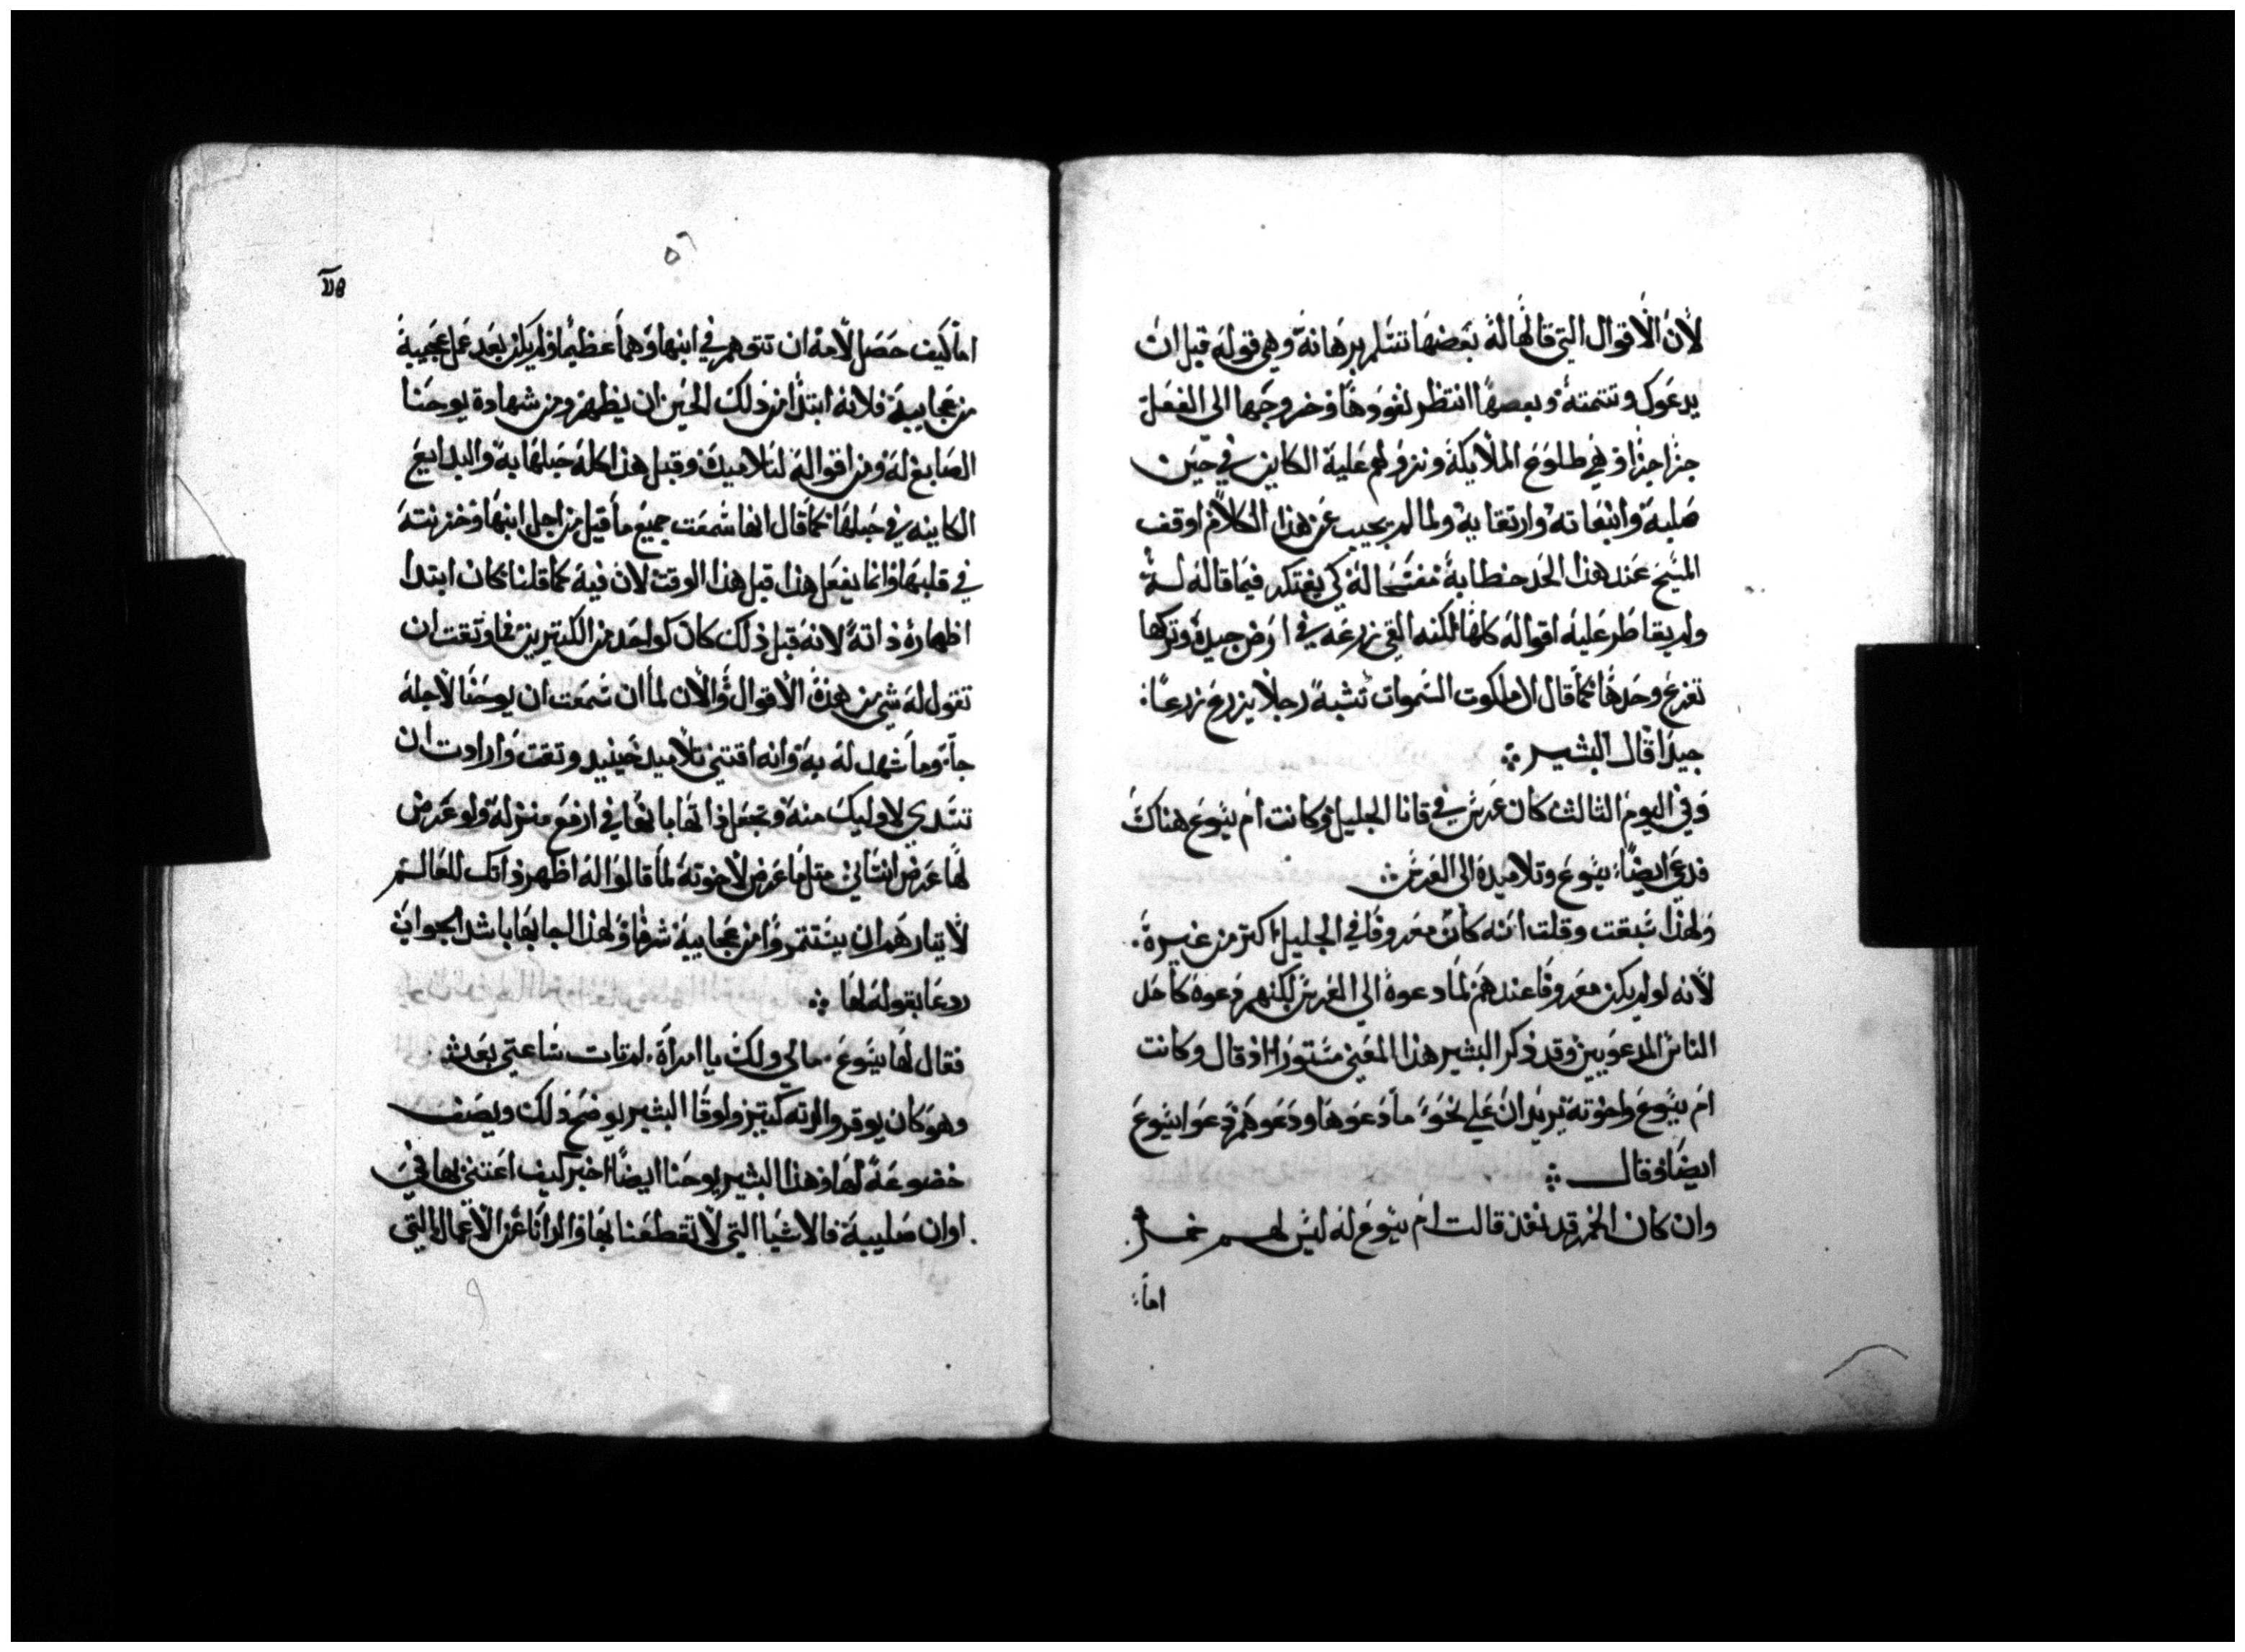 لأن الأقوال التي قالها له بعضها تسلم برهانه وهي قوله قبل ان
يدعوك وتتمته وبعضها انتظر نفوذها وخروجها الى الفعل
جزا جزا وهي طلوع الملايكة ونزولهم عليه الكاين في حين
صلبه وانبعاته وارتقايه ولما لم يجيب عن هذا الكلام اوقف
المسيح عند هذا الحد خطابه مفسحا له كي يفتكر فيما قاله له
ولم يقاطر عليه اقواله كلها لكنه القي زرعه في ارض جيدة وتركها
تفرع وحدها كما قال ان ملكوت السموات تشبه رجلا يزرع زرعا
جيدا قال البشير
وفي اليوم الثالث كان عرس في قانا الجليل وكانت ام يسوع هناك
فدعي ايضا يسوع وتلاميده الى العرس
ولهذا سبقت وقلت انه كان معروفا في الجليل اكتر من غيره
لانه لو لم يكن معروفا عندهم لما دعوه الى العرس لكنهم دعوه كاحد
الناس المدعويين وقد ذكر البشير هذا المعني مستورا اذ قال وكانت
ام يسوع واخوته يريد ان علي نحو ما دعوها ودعوهم دعوا يسوع
ايضا وقال
وان كان الخمر قد نفذ قالت ام يسوع له ليس لهم خمر
اما
٥٦
اما كيف حصل لامه ان تتوهم في ابنها وهما عظيما ولم يكن بعد عمل عجيبة
من عجايبه فلانه ابتدا من ذلك الحين ان يظهر ومن شهادة يوحنا
الصابغ له ومن اقواله لتلاميده وقبل هذا كله حبلها به والبدايع
الكاينه في حبلها كما قال انها سمعت جميع ما قيل من اجل ابنها وخزنته
في قلبها وانما يفعل هذا قبل هذا الوقت لان فيه كما قلنا كان ابتدا
اظهاره ذاته لانه قبل ذلك كان كواحد من الكتيرين فما وتقت ان
تقول له شي من هذه الاقوال والان لما ان سمعت ان يوحنا لاجله
جا وما شهد له به وانه اقتني تلاميد حينيد وتقت وارادت ان
تسدي لاوليك منه وتجعل ذاتها بابنها في ارفع منزله ولو عرض
لها عرض انساني متل ما عرض لاخوته لما قالوا له اظهر ذاتك للعالم
لايتارهم ان يستتمروا من عجايبه شرفا ولهذا اجابها باشد الجواب
ردعا بقوله لها
فقال لها يسوع مالي ولك يا امراة لم تات ساعتي بعد
وهو كان يوقر والدته كتير ولوقا البشير يوضح ذلك ويصف
خضوعه لها وهذا البشير يوحنا ايضا اخبر كيف اعتني بها في
اوان صليبه فالاشيا التي لا تقطعنا بها والدانا عن الاعمال التي